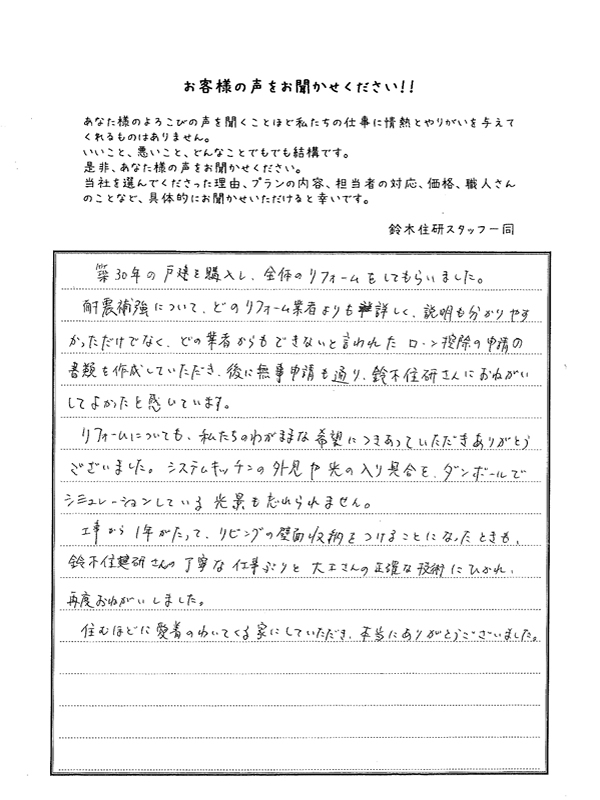 お客様の声をお聞かせください!!
あなた様のよろこびの声を聞くことほど私たちの仕事に情熱とやりがいを与えて
くれるものはありません。
いいこと、悪いこと、どんなことでもでも結構です。
是非、あなた様の声をお聞かせください。
当社を選んでくださった理由、プランの内容、担当者の対応、価格、職人さん
のことなど、具体的にお聞かせいただけると幸いです。
鈴木住研スタッフ一同
築30年の戸建を購入し、全体のリフォームをしてもらいました。
耐震補強について、どのリフォーム業者よりも詳しく、説明も分かりやす
かっただけでなく、どの業者からもできないと言われたローン控除の申請の
書類を作成していただき、後に無事申請も通り、鈴木住研さんにおねがい
してよかったと感じています。
リフォームについても、私たちのわがままな希望につきあっていただきありがとう
ございました。システムキッチンの外見や光の入り具合を、ダンボールで
シミュレーションしている光景も忘れられません。
工事から1年がたって、リビングの壁面収納をつけることになったときも、
鈴木住研さんの丁寧な仕事ぶりと大工さんの正確な技術にひかれ、
再度おねがいしました。
住むほどに愛着のわいてくる家にしていただき、本当にありがとうございました。